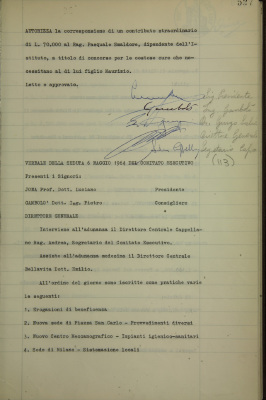 AUTORIZZA la corresponsione di un contributo straordinario
di L. 70,000 al Rag. Pasquale
dipendente dell'I-
stituto, a titolo di concorso per le costose cure che ne-
cessitano al di lui figlio Maurizio.
Letto e approvato.
VERBALE DELLA SEDUTA 6 MAGGIO DEL COMITATO ESECUTIVO
Presenti i Signori:
JONA Prof. Dott. Luciano Presidente
Dott. Ing. Pietro Consigliere
DIRETTORE GENERALE
Interviene all'adunanza il Direttore Centrale Cappella-
no Rag. Andrea, Segretario del Comitato Esecutivo.
Assiste all'adunanza medesima il Direttore Centrale
Bellavita Dott. Emilio.
All'ordine del giorno sono inscritte come pratiche varie
le seguenti:
1. Erogazioni di beneficenza
2. Nuova sede di Piazza San Carlo - Provvedimenti diversi
3. Nuovo Centro Meccanografico - Impianti igienico-sanitari
4. Sede di Milano - Sistemazione locali